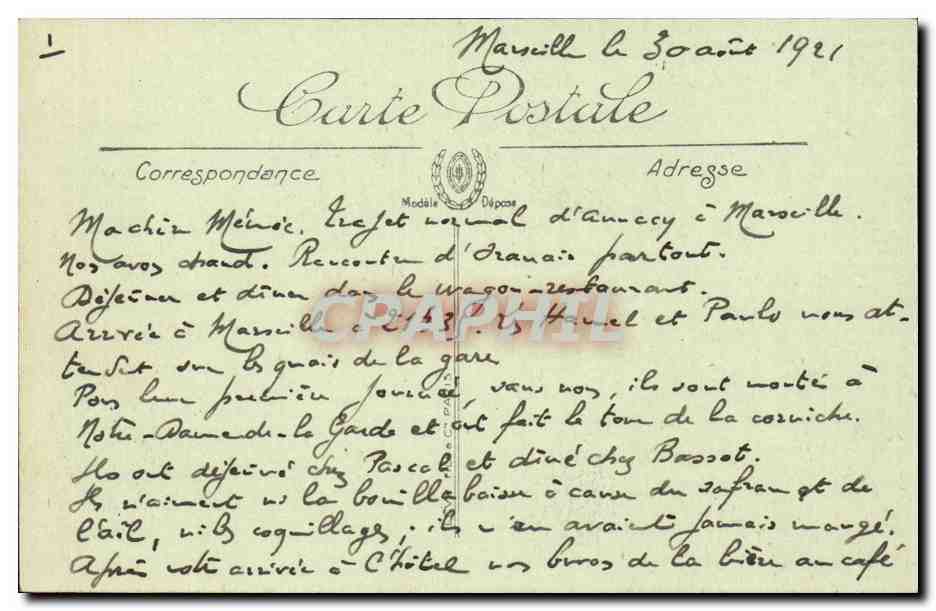 1
Marseille le 30 août 1921
Carte Postale
Correspondance
Adresse
Modèle Déposé
Ma chère Mémée. Trajet normal d'Annecy à Marseille.
Nos avos chaud. Rencontre d'Oranais partout.
Déjeuner et dîner dans le wagon-restaurant.
Arrivée à Marseille à 21h3 Hamel et Paulo nous at-
tendent sur les quais de la gare
Pour leur première journée, sans nos, ils sont montés à
Notre-Dame-de-la Garde et ont fait le tour de la corniche.
Ils ont déjeuné chez Pascal et dîné chez Basset.
Ils n'aiment ni la bouillabaisse à cause du safran et de
l'ail, ni les coquillages; ils n'en avaient jamais mangé.
Après notre arrivée à l'hôtel nos buvos de la bière au café
CPAPHIL